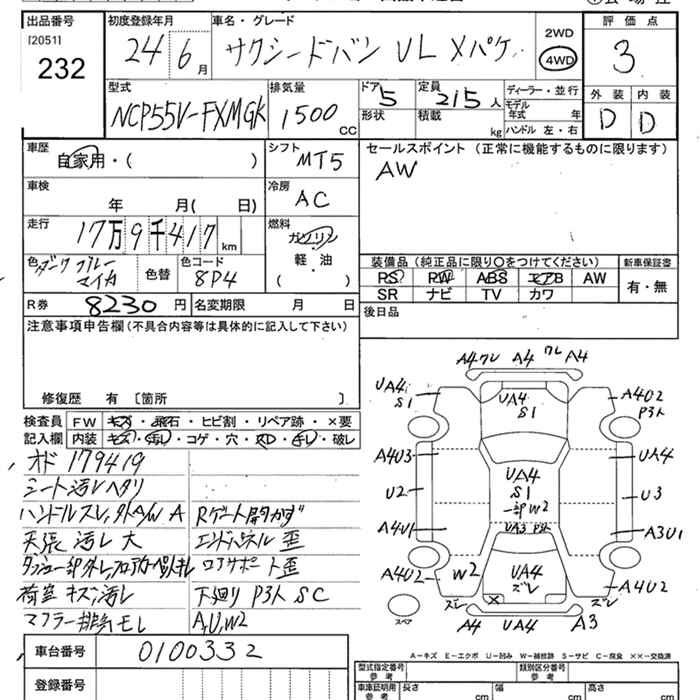 出品番号
[2051]
232
初度登録年月
24 6 月
車名・グレード
サクシードバン UL Xパケ
2WD
4WD
評価点
3
型式
NCP55V-FXMGK
排気量
1500 CC
ドア 5
形状
定員 2/5 人
積載 kg
ディーラー・並行
モデル年式 年
ハンドル 左・右
外装 内装
D D
車歴
自家用・( )
シフト MT5
セールスポイント (正常に機能するものに限ります)
AW
車検
年 月( 日)
冷房 AC
走行
17万9千417 km
燃料
ガソリン
軽・油
( )
色 ダークブルーマイカ
色替
色コード
8P4
装備品 (純正品に限り〇をつけてください)
新車保証書
PS PW ABS エアB AW
SR ナビ TV カワ
有・無
R券 8230 円
名変期限 月 日
後日品
注意事項申告欄 (不具合内容等は具体的に記入して下さい)
修復歴 有 [箇所 ]
検査員記入欄
FW キズ・飛石・ヒビ割・リペア跡・×要
内装 キズ・汚レ・コゲ・穴・スレ・破レ
オド 179419
シート汚レヘタリ
ハンドルスレ, 外A/W A
Rゲート開カズ
天張 汚レ 大
エンドパネル 歪
ロアサポート 歪
荷室 キズ汚レ
下廻り P3ト S C
マフラー排気モレ
A, U, W2
車台番号 0100332
登録番号
A4ワレ A4 ワレ A4
UA4 S1
UA4 S1
A4U2 P3ト
A4U3
UA4 S1 一部W2
UA4
U2
U3
A4U1
UA3 P3ト
A3U1
A4U2
W2
UA4 ズレ
A4U2
ズレ
ズレ
スペア
A4 UA4 A3
A－キズ E－エクボ U－凹み W－補修跡 S－サビ C－腐食 ××－交換済
型式指定番号 参考
類別区分番号 参考
車庫証明用 参考
長さ cm
幅 cm
高さ cm